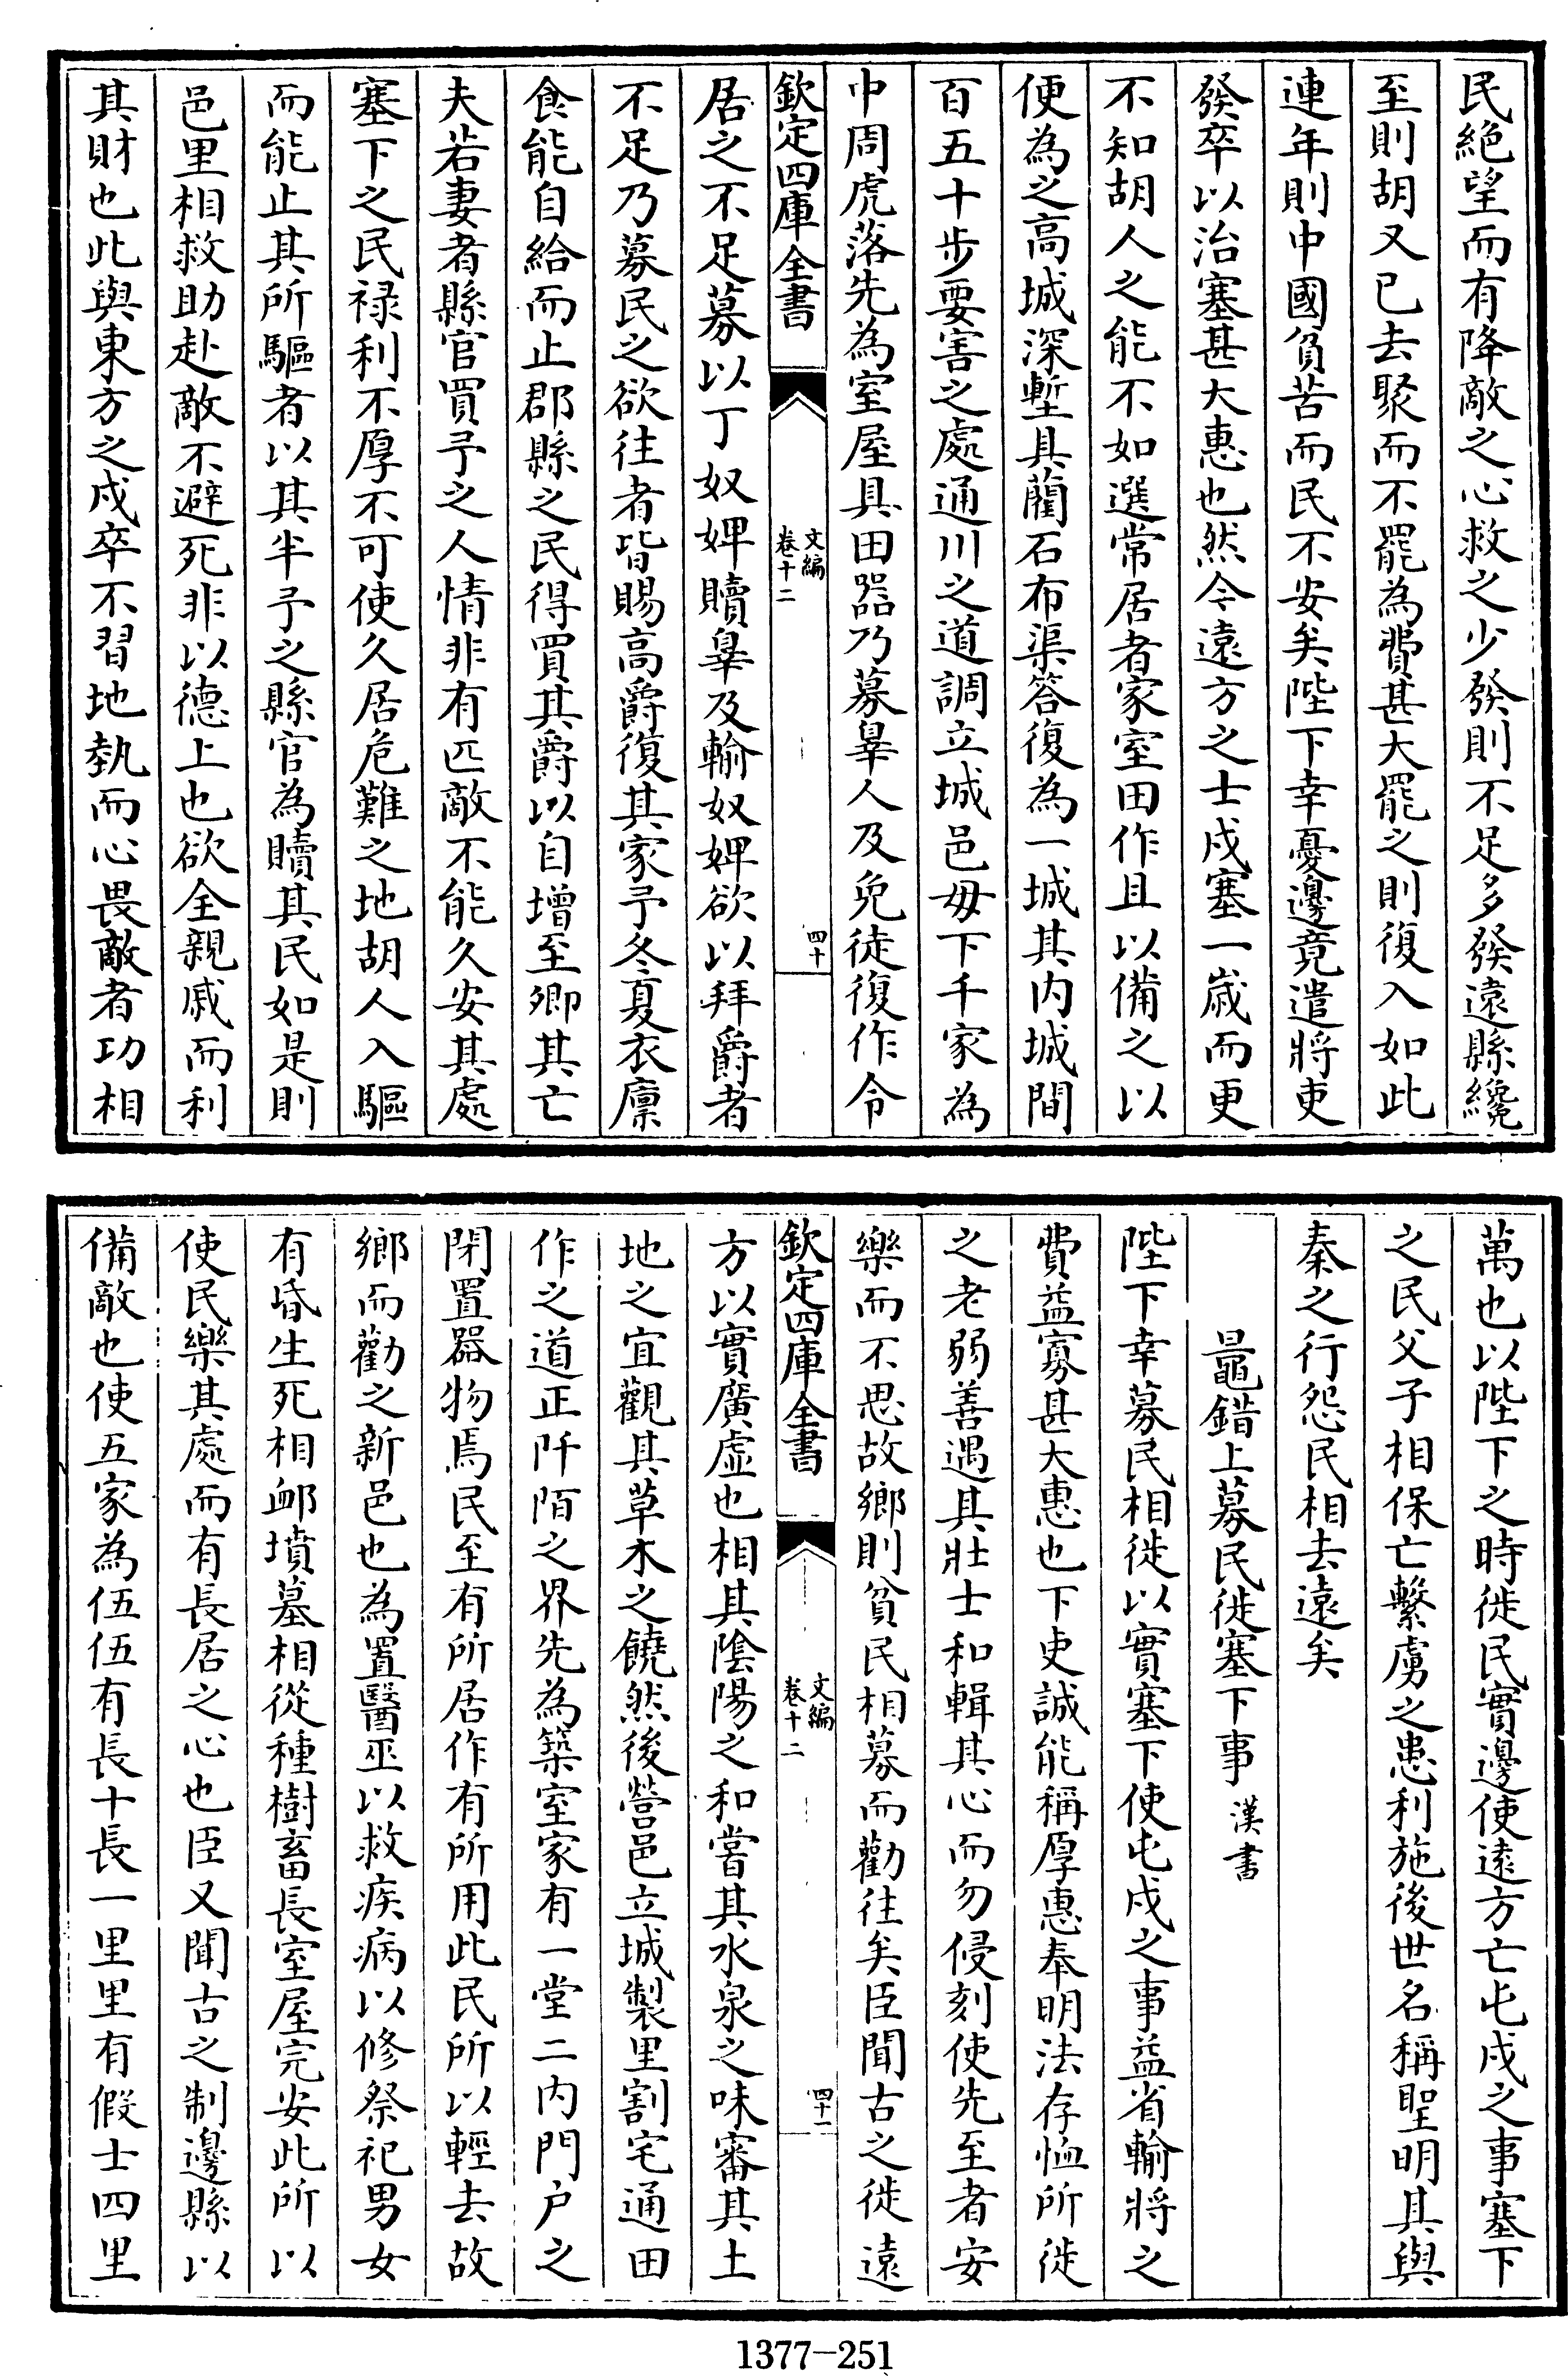 民絶望而有降敵之心救之少發則不足多發遠縣纔
至則胡又已去聚而不罷為費甚大罷之則復入如此
連年則中國貧苦而民不安矣陛下幸憂邊竟遣將吏
發卒以治塞甚大惠也然令遠方之士戍塞一嵗而更
不知胡人之能不如選常居者家室田作且以備之以
便為之高城深塹具藺石布渠答復為一城其内城間
百五十步要害之處通川之道調立城邑毋下千家為
中周虎落先為室屋具田器乃募辠人及免徒復作令
欽定四庫全書
文編
卷十二
四十
居之不足募以丁奴婢贖辠及輸奴婢欲以拜爵者
不足乃募民之欲往者皆賜高爵復其家予冬夏衣廪
食能自給而止郡縣之民得買其爵以自增至卿其亡
夫若妻者縣官買予之人情非有匹敵不能久安其處
塞下之民禄利不厚不可使久居危難之地胡人入驅
而能止其所驅者以其半予之縣官為贖其民如是則
邑里相救助赴敵不避死非以德上也欲全親戚而利
其財也此與東方之戍卒不習地埶而心畏敵者功相
萬也以陛下之時徙民實邊使遠方亡屯戍之事塞下
之民父子相保亡繫虜之患利施後世名稱聖明其與
秦之行怨民相去遠矣
鼂錯上募民徙塞下事 漢書
陛下幸募民相徙以實塞下使屯戍之事益省輸將之
費益寡甚大惠也下吏誠能稱厚惠奉明法存恤所徙
之老弱善遇其壯士和輯其心而勿侵刻使先至者安
樂而不思故鄉則貧民相募而勸往矣臣聞古之徙遠
欽定四庫全書
文編
卷十二
四十一
方以實廣虚也相其陰陽之和嘗其水泉之味審其土
地之宜觀其草木之饒然後營邑立城製里割宅通田
作之道正阡陌之界先為築室家有一堂二内門户之
閉置器物焉民至有所居作有所用此民所以輕去故
鄉而勸之新邑也為置醫巫以救疾病以修祭祀男女
有昏生死相衈墳墓相從種樹畜長室屋完安此所以
使民樂其處而有長居之心也臣又聞古之制邊縣以
備敵也使五家為伍伍有長十長一里里有假士四里
1377—251